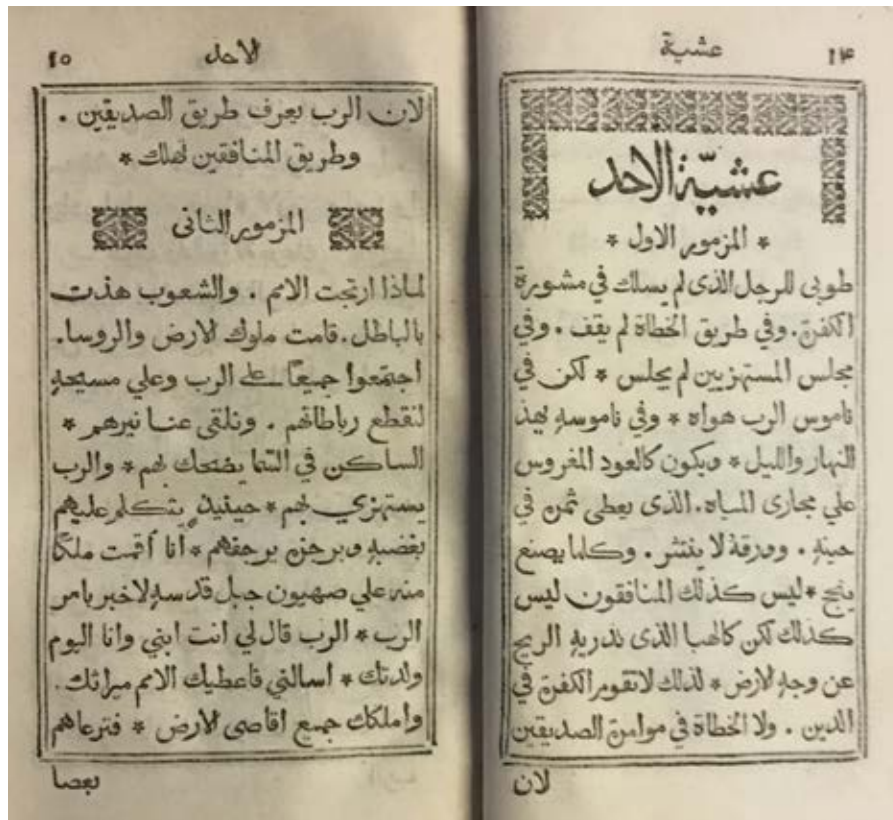 ١٤
عشية
عشيّة الاحد
* المزمور الاول *
طوبي للرجل الذى لم يسلك في مشورة
الكفرة . وفي طريق الخطاة لم يقف . وفي
مجلس المستهزيين لم يجلس * لكن في
ناموس الرب هواه * وفي ناموسهِ يهذ
النهار والليل * ويكون كالعود المغروس
علي مجارى المياه . الذى يعطى ثمرة في
حينهِ . وورقهُ لا ينتثر . وكلما يصنع
ينجح * ليس كذلك المنافقون ليس
كذلك لكن كالهبا الذى تذريهِ الريح
عن وجهِ الارض * لذلك لا تقوم الكفرة في
الدين . ولا الخطاة في موامرة الصديقين
لان
الاحد
١٥
لان الرب يعرف طريق الصديقين .
وطريق المنافقين تهلك *
المزمور الثانى
لماذا ارتجت الامم . والشعوب هذت
بالباطل . قامت ملوك الارض والروسا .
اجتمعوا جميعاً على الرب وعلي مسيحهِ
لنقطع رباطاتهم . ونلقى عنا نيرهم *
الساكن في السما يضحك بهم * والرب
يستهزي بهم * حينيذٍ يتكلم عليهم
بغضبهِ وبرجزهِ يرجفهم * انا أقمت ملكًا
منه علي صهيون جبل قدسهِ لاخبر بامر
الرب * الرب قال لي انت ابني وانا اليوم
ولدتك * اسالني فاعطيك الامم ميراثك .
واملكك جميع اقاصى الارض * فترعاهم
بعصا